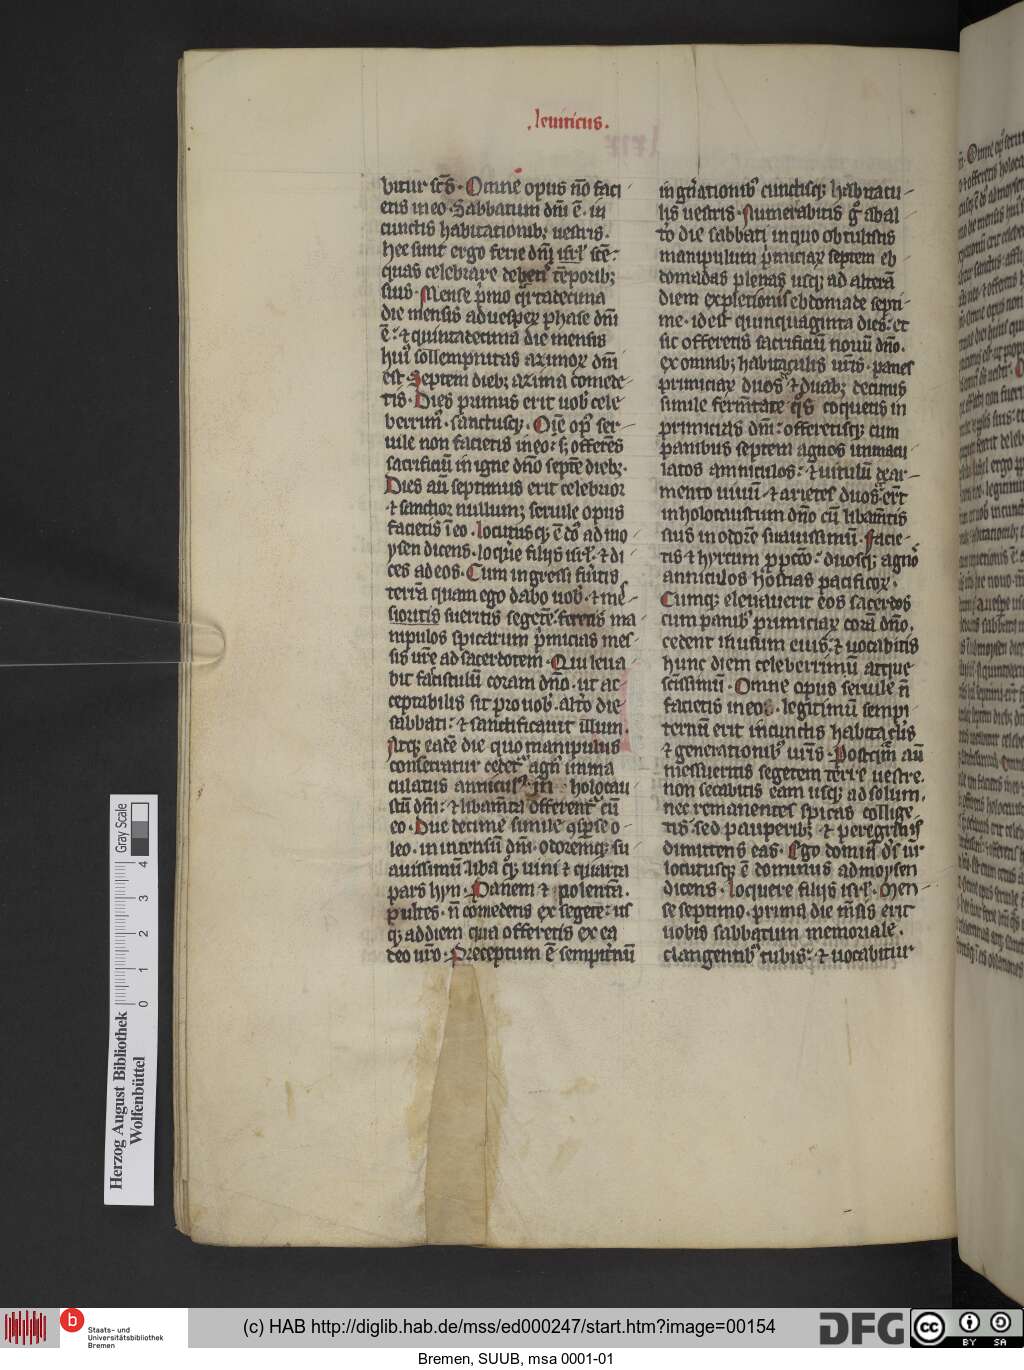 leuiticus.
bitur sc̄s. Omne opus nō faci
etis in eo. Sabbatum dn̄i ē. in
cunctis habitationibꝫ uestris.
hee sunt ergo ferie dn̄i isrl̓ sc̄e.
quas celebrare debetis tēporibꝫ
suis. Mense p̄mo q̄rtadecima
die mensis ad uesperꝝ phase dn̄i
ē. ⁊ quintadecima die mensis
huiꝰ sollempnitas azimoꝝ dn̄i
est. Septem diebꝫ azima comede
tis. Dies primus erit uob̓ cele
berrimꝰ. sanctusqꝫ. Oīe opꝰ ser
uile non facietis in eo: sꝫ offeretis
sacrificiū in igne dn̄o septē diebꝫ.
Dies aū septimus erit celebrior
⁊ sanctior nullumqꝫ seruile opus
facietis ī eo. locutusqꝫ ē dn̄s ad mo
ysen dicens. loquere filijs isrl̓. ⁊ di
ces ad eos. Cum ingressi fu̓itis
terrā quam ego dabo uob̓. ⁊ me
ssueritis segetē feretis ma
nipulos spicarum p̄micias mes
sis ur̄e ad sacerdotem. Qui leua
bit fasciculū coram dn̄o. ut ac
ceptabilis sit pro uob̓. alt̓o die
sabbati. ⁊ sanctificauit illum.
Atqꝫ eadē die quo manipulus
consecratur cedet̓ agnꝰ inma
culatus anniculꝰ in holocau
stū dn̄i. ⁊ libam̄ta offerent̓ cū
eo. Due decime simile ꝯsp̄se o
leo. in incensū dn̄i. odoremqꝫ su
auissimū. liba qꝫ uini ⁊ quarta
pars hyn. Panem ⁊ polentā.
pultes. n̄ comedetis ex segete. us
qꝫ ad diem qua offeretis ex ea
deo ur̄o. Preceptum ē sempit̓nū
in gn̄ationibꝰ cunctisqꝫ habitacu
lis uestris. Numerabitis g̊ ab al
t̓o die sabbati in quo obtulistis
manipulum p̄miciaꝝ septem eb
domadas plenas usqꝫ ad alterā
diem expletionis ebdomade septi
me. id est quinquaginta dies. et
sic offeretis sacrificiū nouū dn̄o.
ex omnibꝫ habitaculis ur̄is. panes
primiciaꝝ duos ⁊ duabꝫ decimis
simile ferm̄tate q̄s coquetis in
primicias dn̄i. offeretisqꝫ cum
panibus septem agnos inmacu
latos anniculos. ⁊ uitulū de ar
mento unū ⁊ arietes duos. er̄t
in holocaustum dn̄o cū libam̄tis
suis in odorē suauissimū. Facie
tis ⁊ hyrcum p̱ pcc̄o. duosqꝫ agnos
anniculos hostias pacificoꝝ.
Cumqꝫ eleuauerit eos sacerdos
cum panibꝰ primiciaꝝ corā dn̄o.
cedent in usum eius. ⁊ uocabitis
hunc diem celeberrimū atque
sc̄issimū. Omne opus seruile n̄
facietis in eo. legitimū sempi
ternū erit in cunctis habitac̓lis
⁊ generationibꝰ ur̄is. Postq̄m aū
messueritis segetem terre uestre.
non secabitis eam usqꝫ ad solum.
nec remanentes spicas collige
tis. sed pauperibꝫ ⁊ peregrinis
dimittens eas. Ego dominꝰ d̄s ur̄.
locutusqꝫ ē dominus ad moysen
dicens. loquere filijs isrl̓. Men
se septimo. prima die m̄sis erit
uobis sabbatum memoriale.
clangentibꝰ tubis. ⁊ uocabitur
Gray Scale
0 1 2 3 4
Herzog August Bibliothek
Wolfenbüttel
b
Staats- und
Universitätsbibliothek
Bremen
(c) HAB http://diglib.hab.de/mss/ed000247/start.htm?image=00154
DFG
cc
BY SA
Bremen, SUUB, msa 0001-01